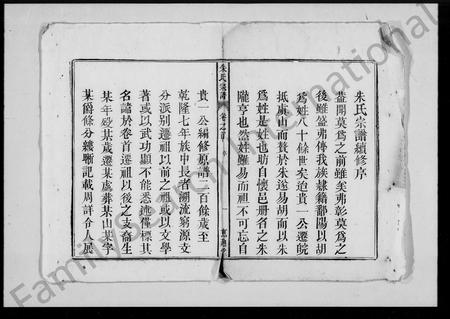 朱氏宗譜續修序
蓋聞莫為之前雖美弗彰莫為之
後雖盛弗傳我族隸籍鄱陽以胡
為姓八十餘世矣迨貴一公遷皖
抵虞山而贅於朱遂易胡而以朱
為姓是姓也助自懷邑册名之朱
隴亨也然姓雖易而祖不可忘自
朱氏宗譜
貴一公編修原譜二百餘歲至
乾隆七年族中長者溯流窮源支
分派別遷祖以前之祖或以文學
著或以武功顯不能悉述僅標其
名諱於卷首遷祖以後之支裔生
某年歿某歲遷某處葬某山某字
某爵條分縷晰記載周詳令人展
FamilySearch International